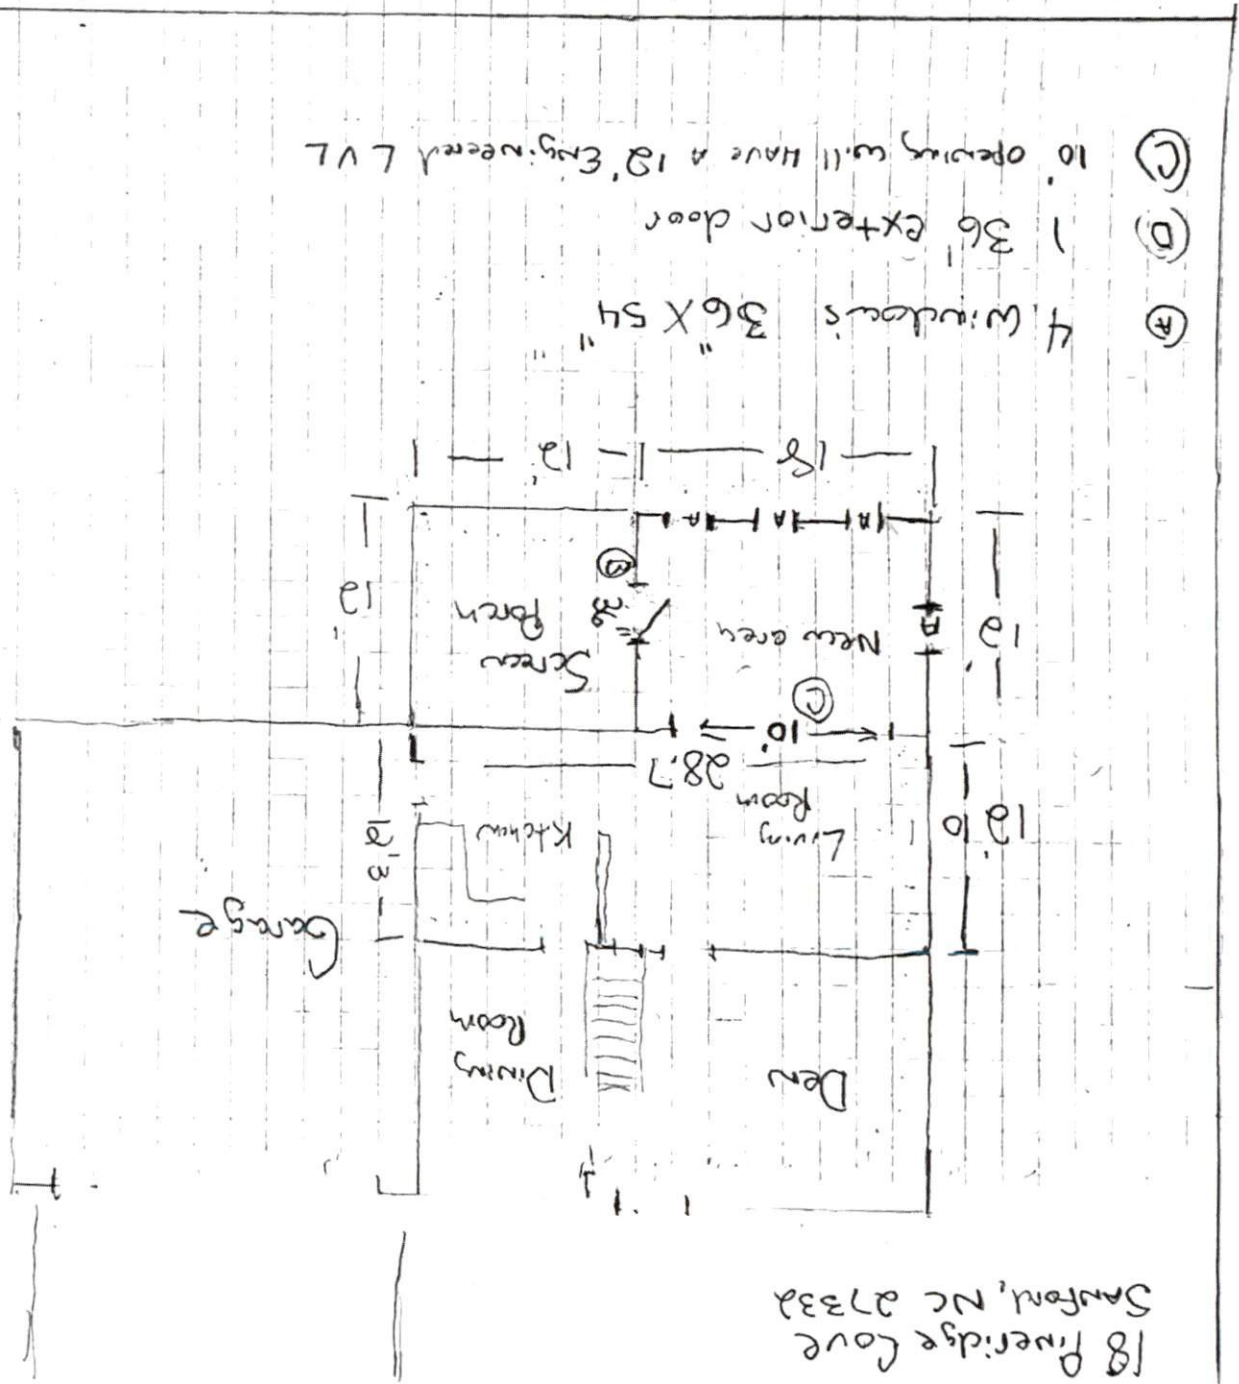 18 Pineridge Cove
Sanford, NC 27332
Den
Dining
Room
Garage
12'10
Living
Room
Kitchen
12'3
28.7
10'
C
12'
New area
Screen
Porch
36"
12'
A
A A A
18
12'
A 4 Windows 36" X 54"
1 36" exterior door
C 10' opening will HAVE A 12' Engineered LVL